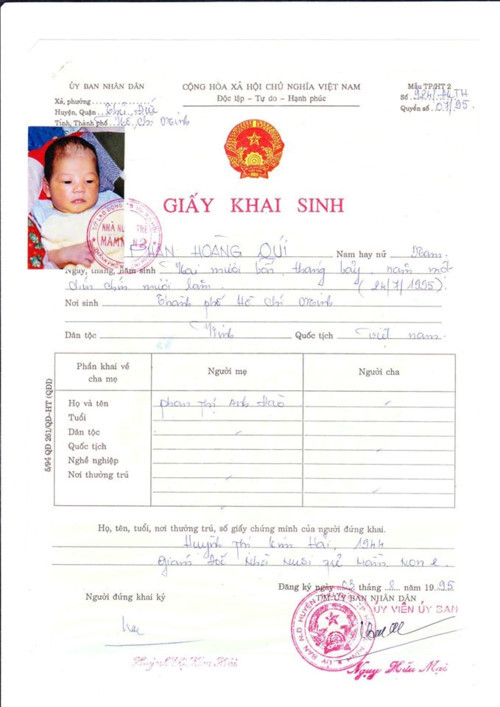 ỦY BAN NHÂN DÂN
Xã, phường
Huyện, Quận Thủ Đức
Tỉnh, Thành phố Hồ Chí Minh
CỘNG HÒA XÃ HỘI CHỦ NGHĨA VIỆT NAM
Độc lập - Tự do - Hạnh phúc
Mẫu TP/HT 2
Số
Quyển số 07/95
GIẤY KHAI SINH
PHAN HOÀNG QUÍ Nam hay nữ Nam
Ngày, tháng, năm sinh Hai mươi bốn, tháng bảy, năm một
chín chín mươi lăm. (24/7/1995)
Nơi sinh Thành phố Hồ Chí Minh
Dân tộc Kinh Quốc tịch Việt nam
Phần khai về cha mẹ
Người mẹ
Người cha
Họ và tên Phan Thị Anh Đào
Tuổi
Dân tộc
Quốc tịch
Nghề nghiệp
Nơi thường trú
5/94 QD 261/QD-HT (QDD)
Họ, tên, tuổi, nơi thường trú, số giấy chứng minh của người đứng khai.
Huỳnh Thị Kim Hải, 1944
Giám đốc Nhà Nuôi trẻ Mầm Non 2
Đăng ký ngày 03 tháng 8 năm 1995
Người đứng khai ký
TM/ỦY BAN NHÂN DÂN
ỦY VIÊN ỦY BAN
Huỳnh Thị Kim Hải